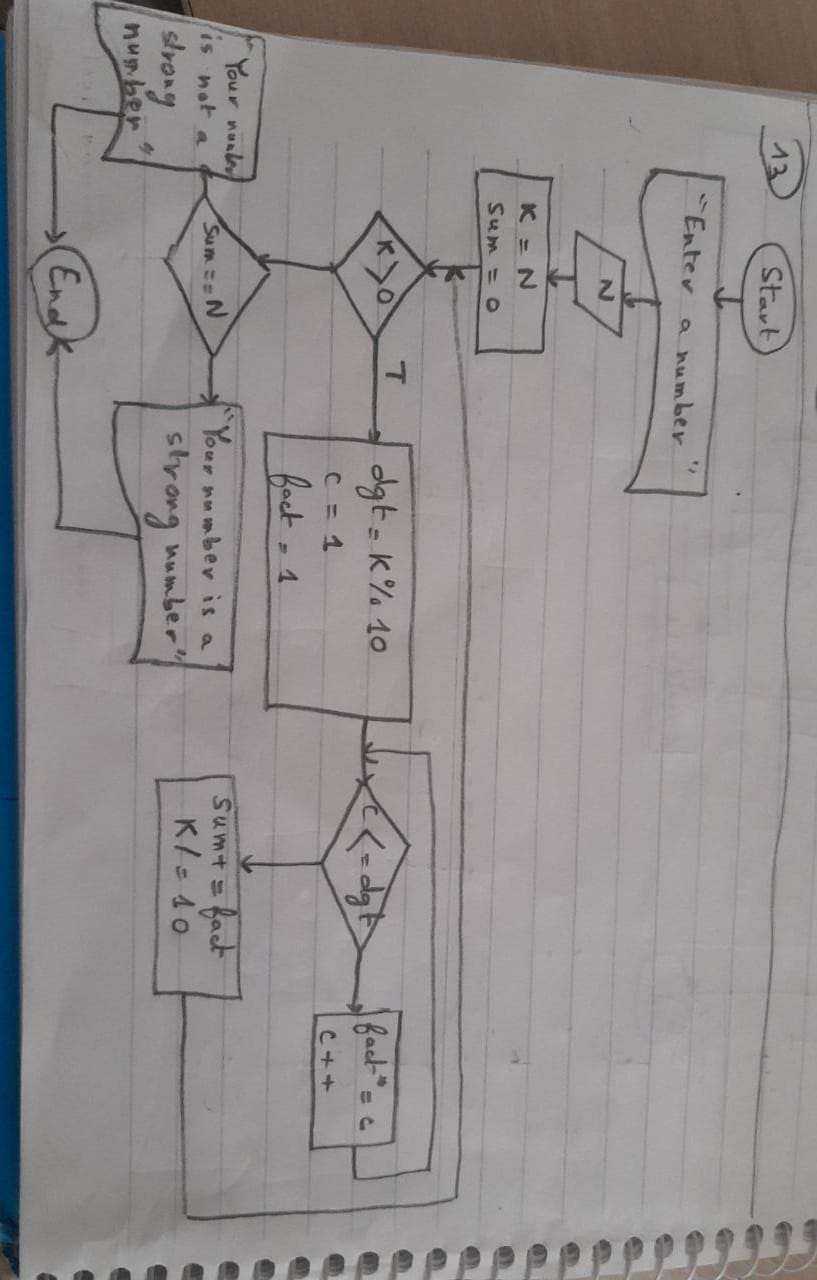 13
Start
"Enter a number"
N
K = N
sum = 0
K>0
T
dgt = K% 10
c = 1
fact = 1
c <= dgt
fact* = c
c + +
sum+ = fact
K/ = 10
sum == N
"Your number is a
strong number"
"Your number
is not a
strong
number"
End